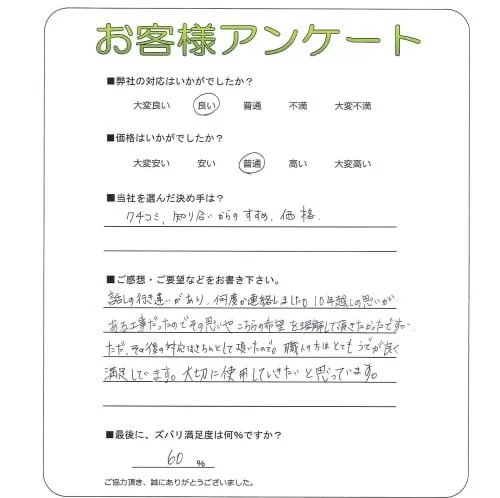 お客様アンケート
■弊社の対応はいかがでしたか?
大変良い 良い 普通 不満 大変不満
■価格はいかがでしたか?
大変安い 安い 普通 高い 大変高い
■当社を選んだ決め手は?
クチコミ、知り合いからのすすめ、価格、
■ご感想・ご要望などをお書き下さい。
話しの行き違いがあり、何度か連絡しました。10年越しの思いが
ある工事だったのでその思いやこちらの希望を理解して頂きたかったです。
ただ、その後の対応はきちんとして頂いたので。職人の方はとてもうでが良く
満足しています。大切に使用していきたいと思っています。
■最後に、ズバリ満足度は何%ですか?
60 %
ご協力頂き、誠にありがとうございました。